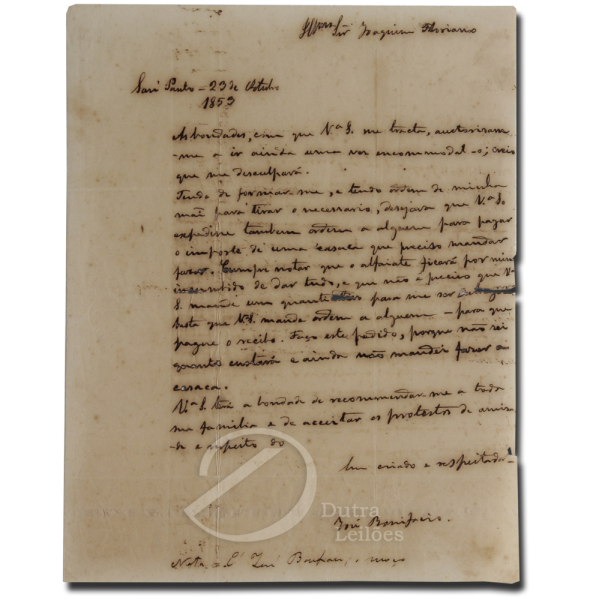 Illmo. Sñr Joaquim Floriano
San Paulo - 23 de Outubro
1853
As bondades, com que V.ª S. me tracta, auctorizam-
-me a ir ainda uma vez encommodal-o; creio
que me desculpará.
Tendo de formar-me, e tendo ordem de minha
mãi para tirar o necessario, desejava que V.ª S.
expedisse tambem ordem a alguem para pagar
o importe de uma casaca que preciso mandar
fazer. Cumpri notar que o alfaiate ficará por mim
incumbido de dar tudo, e que não é preciso que V.ª
S. mande uma quantia para me ser
basta que V.ª S. mande ordem a alguem - para que
pague o recibo. Faço este pedido, porque não sei
quanto custará e ainda não mandei fazer a
casaca.
V.ª S. terá a bondade de recommendar-me a toda
sua familia e de acceitar os protestos de amiza-
de e respeito do
bem criado e respeitador
José Bonifacio.
Nota, o moço
Dutra
Leilões